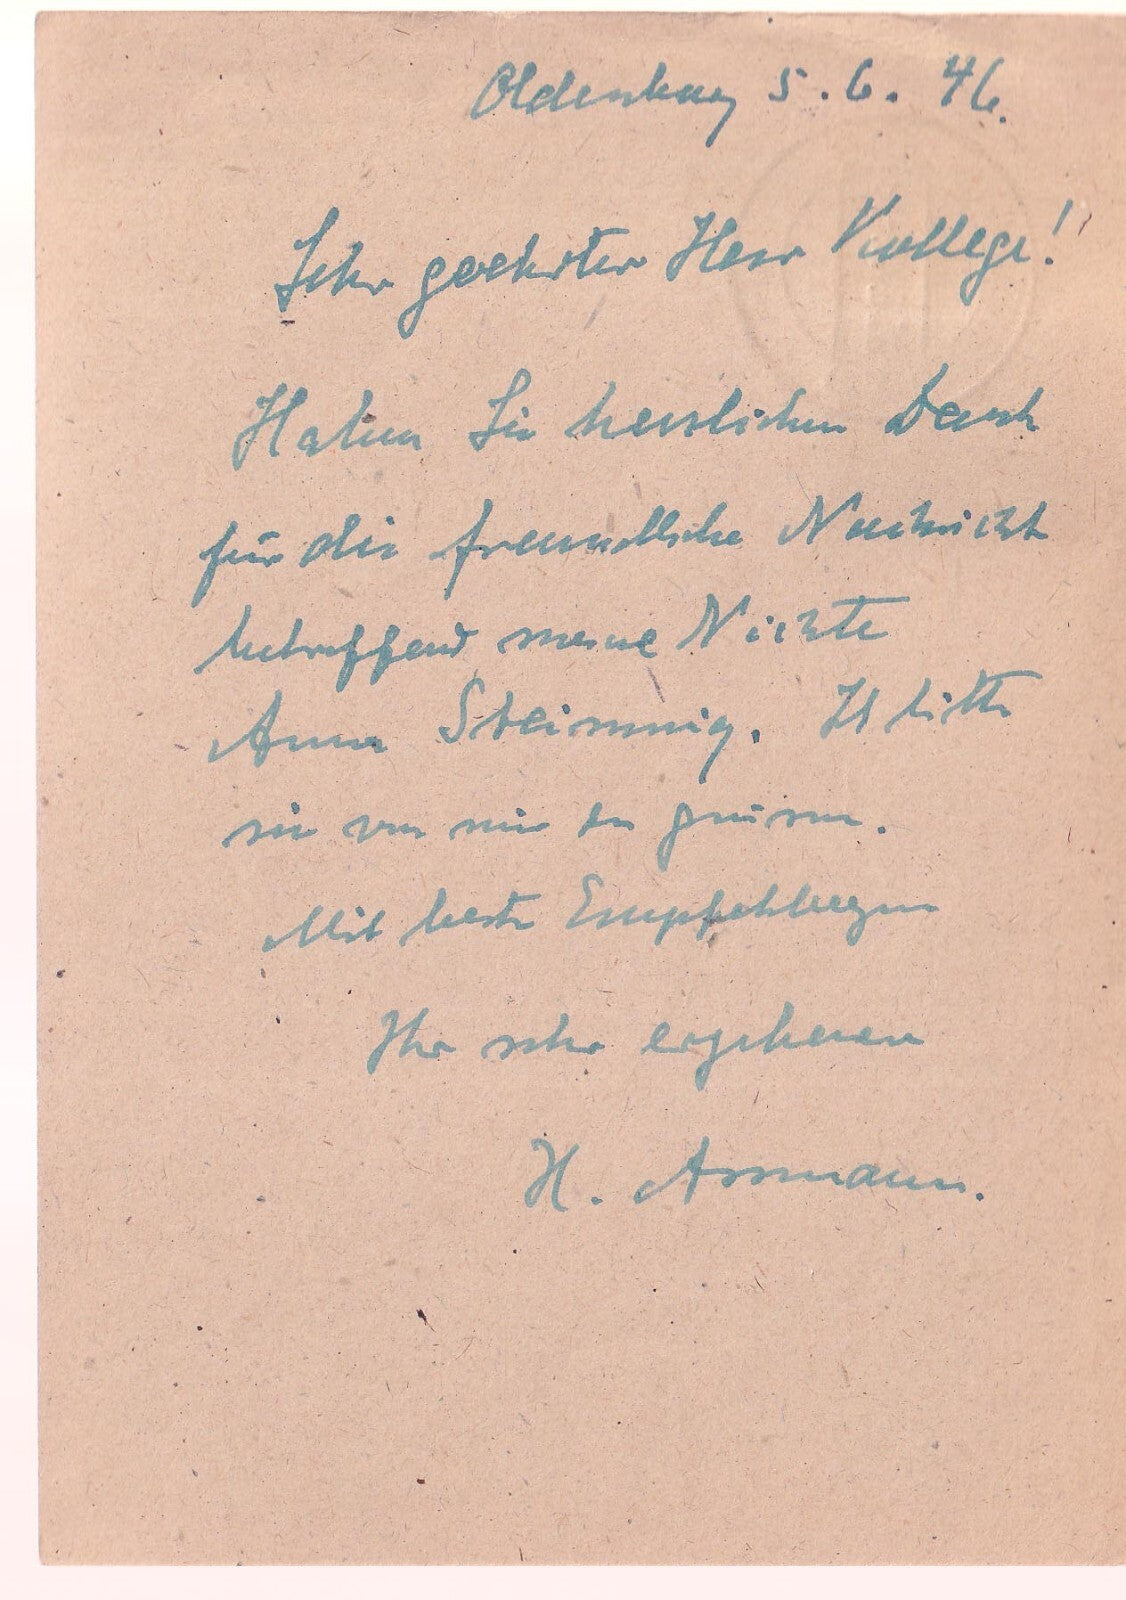 Oldenburg 5.6.46.
Sehr geehrter Herr Kollege!
Haben Sie herzlichen Dank
für die freundliche Nachricht
betreffend meine Nichte
Anna Steimmig. Ich bitte
sie von mir zu grüssen.
Mit besten Empfehlungen
Ihr sehr ergebener
H. Assmann.